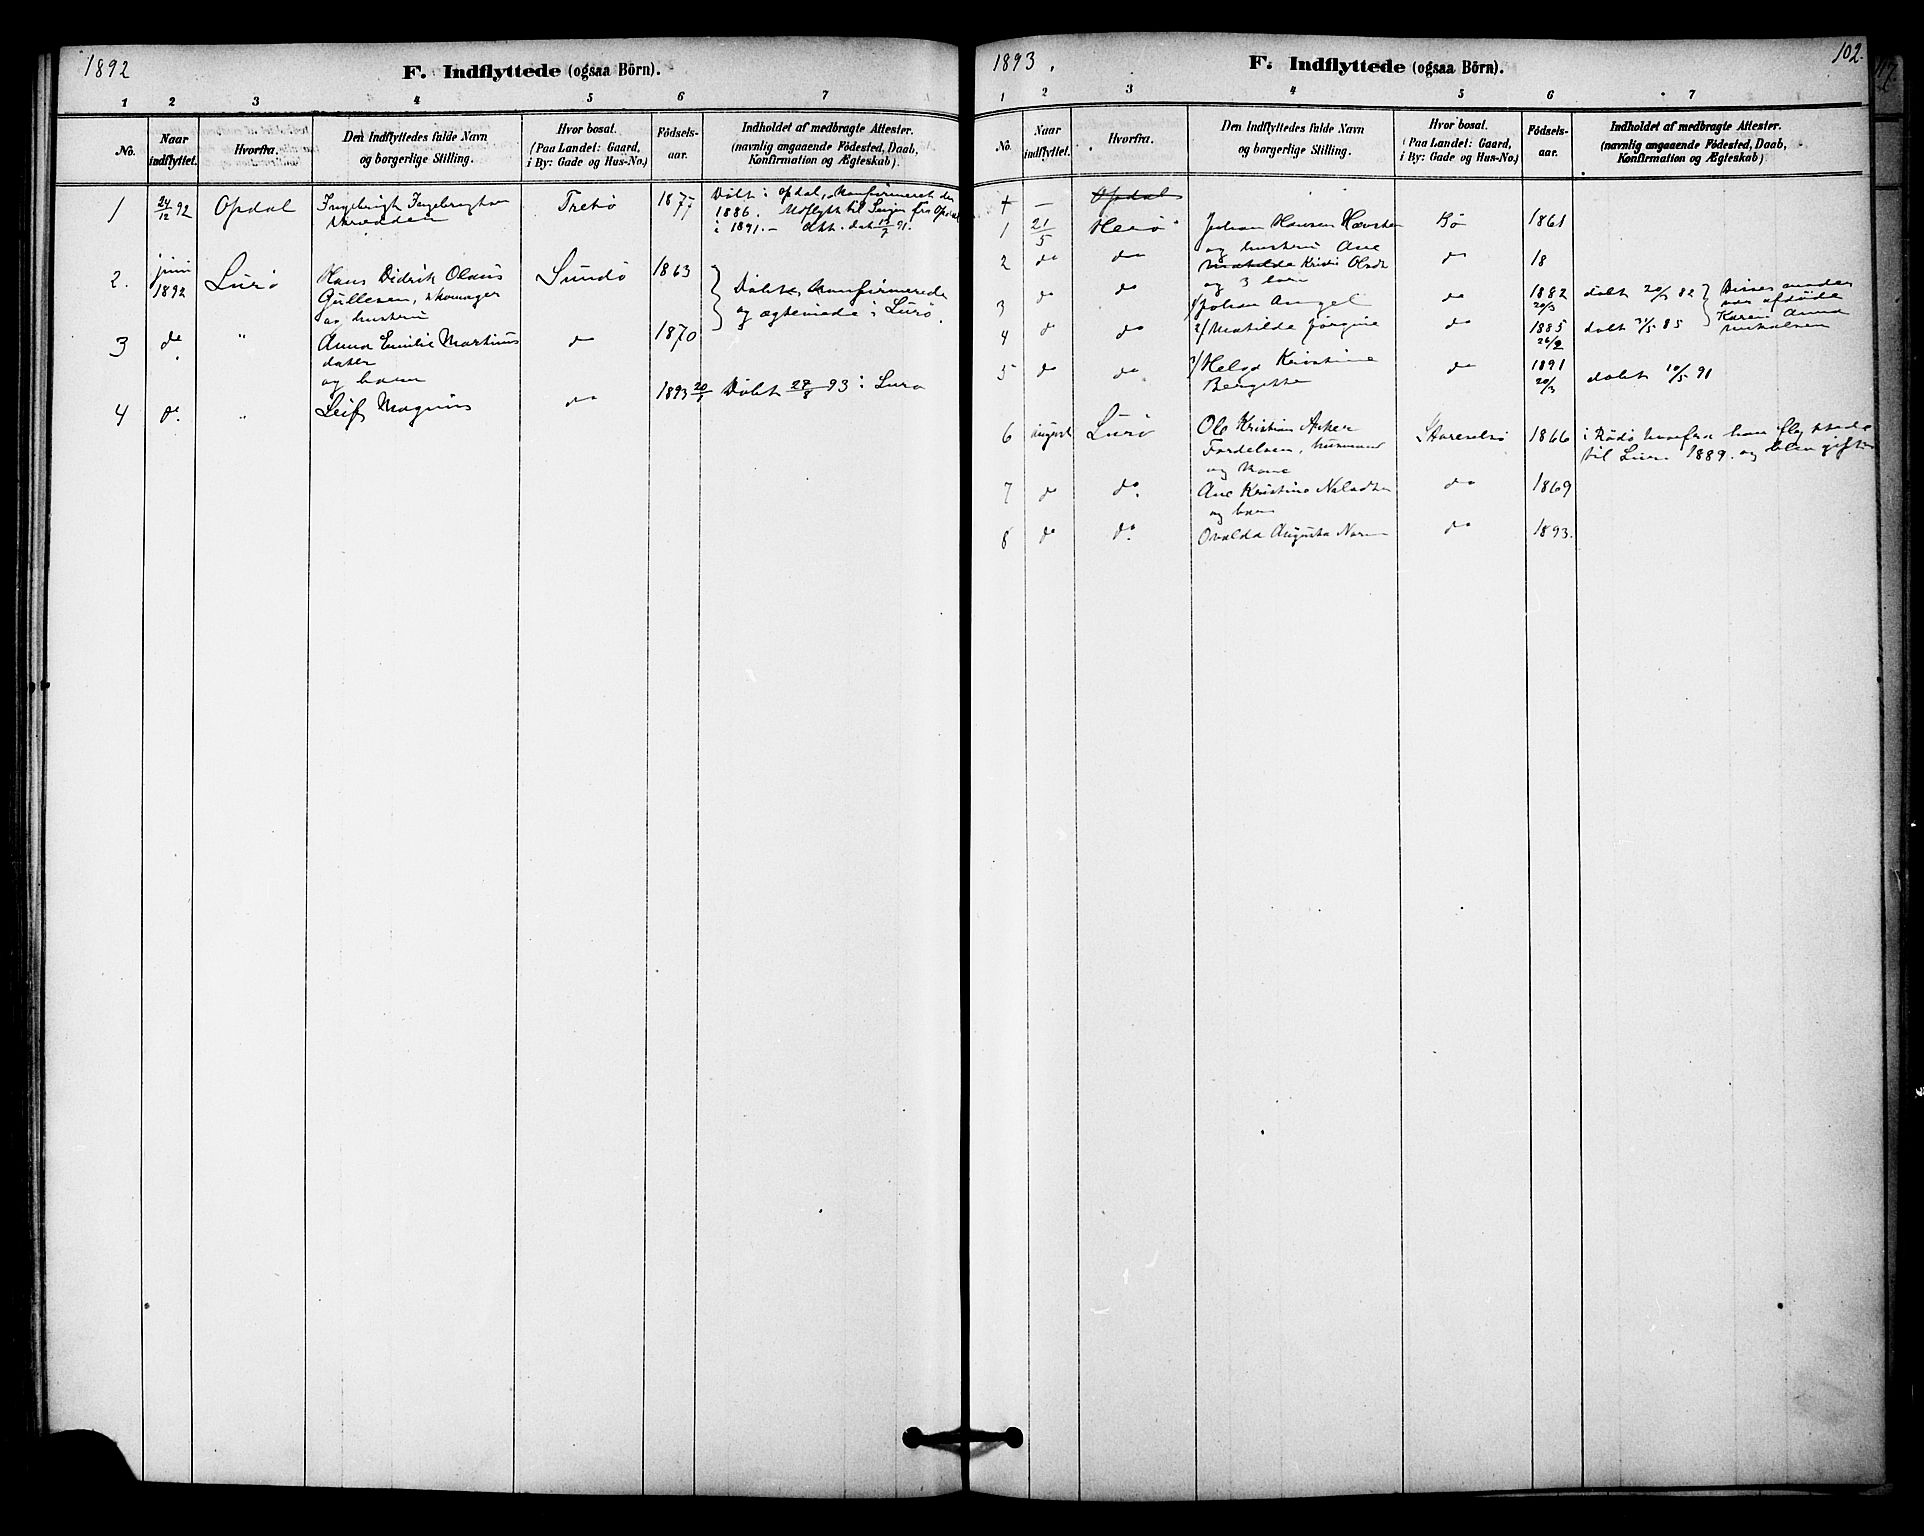 1892
F. Indflyttede (ogsaa Börn).
1 2 3 4 5 6 7
No.
Naar indflyttet.
Hvorfra.
Den Indflyttedes fulde Navn
og borgerlige Stilling.
Hvor bosat.
(Paa Landet: Gaard,
i By: Gade og Hus-No.)
Födsels-
aar.
Indholdet af medbragte Attester.
(navnlig angaaende Födested, Daab,
Konfirmation og Ægteskab).
1 24/12 92 Opdal Ingebrigt Ingebrigtsen Tretö 1877 Döbt i Opdal, konfirmeret der
1886. Udflytt til fra Opdal
i 1891. – Att. dat. 91.
2. juni 1892 Lurö Hans Didrik Olaus Sundö 1863
Gullesen,
og hustru
Döbt, konfirmerede
og ægteviede i Lurö.
3 do " Anna Emilie Martinus do 1870
datter
og barn
4 do. " Leif Magnus do 1893 Döbt 93 i Lurö
1893.
F. Indflyttede (ogsaa Börn).
102.
1 2 3 4 5 6 7
No.
Naar indflyttet.
Hvorfra.
Den Indflyttedes fulde Navn
og borgerlige Stilling.
Hvor bosat.
(Paa Landet: Gaard,
i By: Gade og Hus-No.)
Födsels-
aar.
Indholdet af medbragte Attester.
(navnlig angaaende Födested, Daab,
Konfirmation og Ægteskab)
– Opdal
1 21/5 Herö Johan Hansen Bö 1861
og hustru Ane
2 do do Matilde Kristi do 18
og 3 barn
3 do do 1/ Johan Angel do 1882 20/3 döbt 82 Disses moder
var afdöde
Karen Anna
4 do do 2/ Matilde Jörgine do 1885 döbt 85
5 do do 3/ Helga Kristine do 1891 20/3 döbt 10/5 91
Bergitte
6 august Lurö Ole Kristian 1866 i Rödö hvorfra han
og kone
til Lurö 1889. og blev gift
7 do do. Ane Kristine do 1869
og barn
8 do do. Ovalda Augusta do 1893.